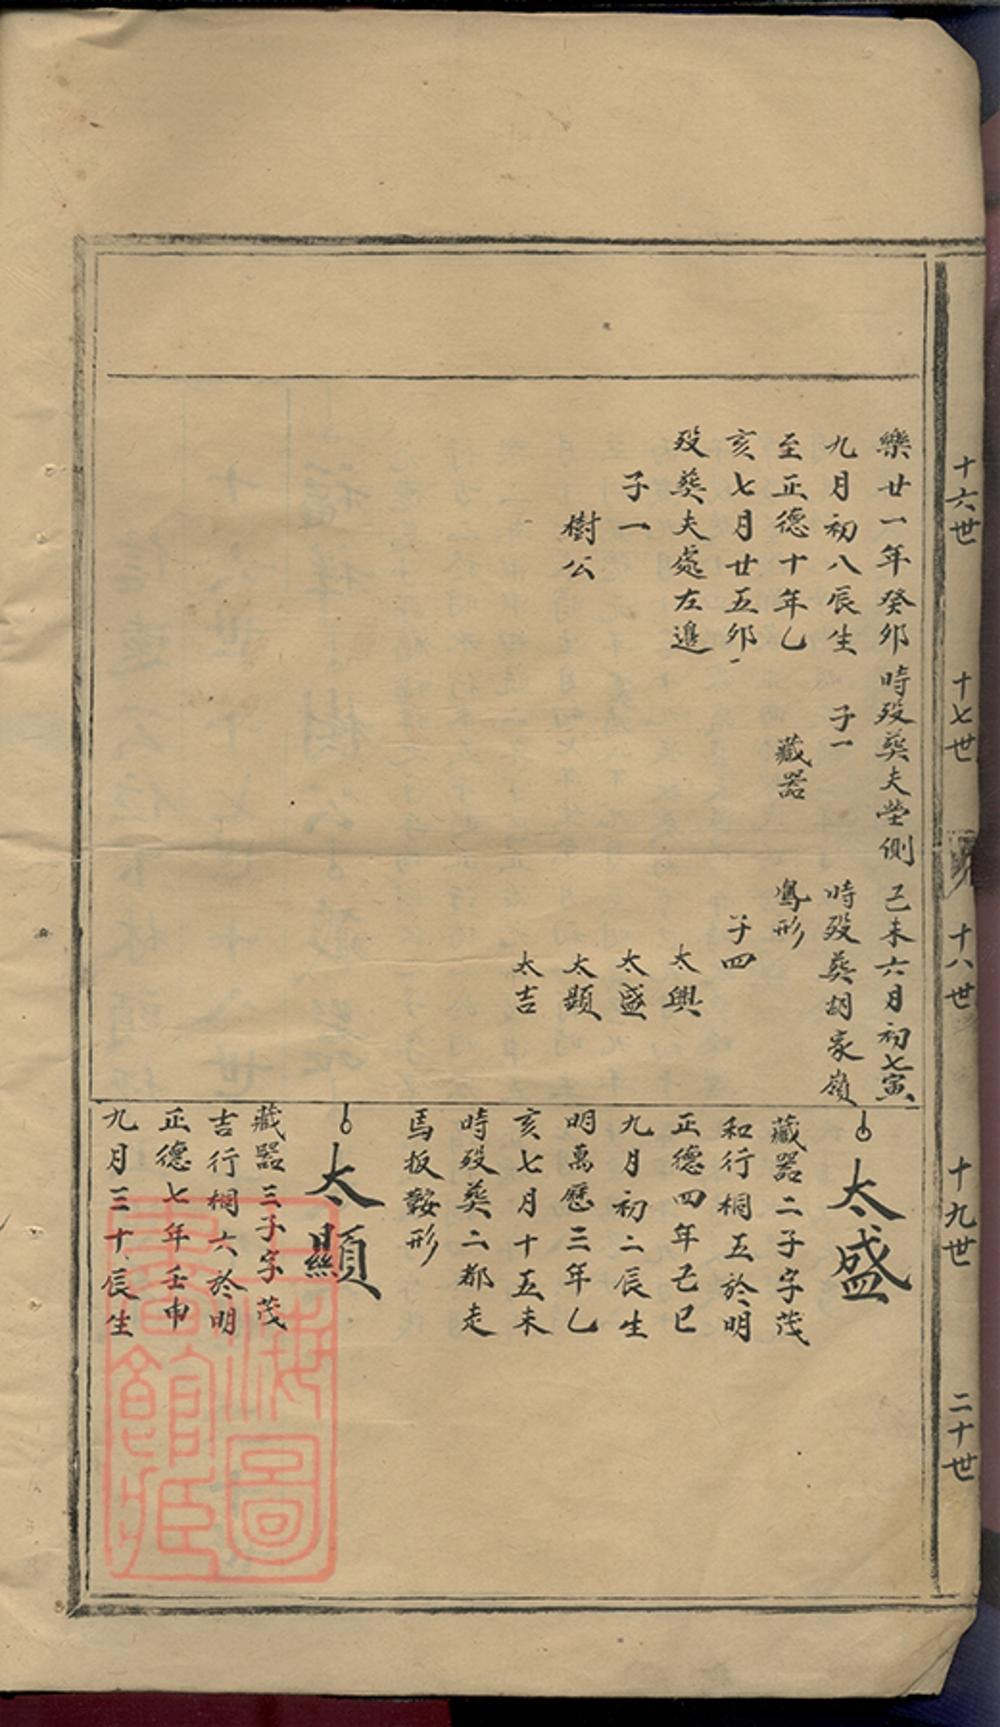 十六世
十七世
十八世
十九世
二十世
樂廿一年癸卯
九月初八辰生
至正德十年乙
亥七月廿五卯
歿葬夫處左邊
子一
樹公
時歿葬夫塋側
子一
藏器
己未六月初七寅
時歿葬胡家嶺
鳬形
子四
太興
太盛
太顯
太吉
太盛
藏器二子字茂
和行桐五於明
正德四年己巳
九月初二辰生
明萬歷三年乙
亥七月十五未
時歿葬二都走
馬扳鞍形
太顯
藏器三子字茂
吉行桐六於明
正德七年壬申
九月三十辰生
上海圖
書館藏